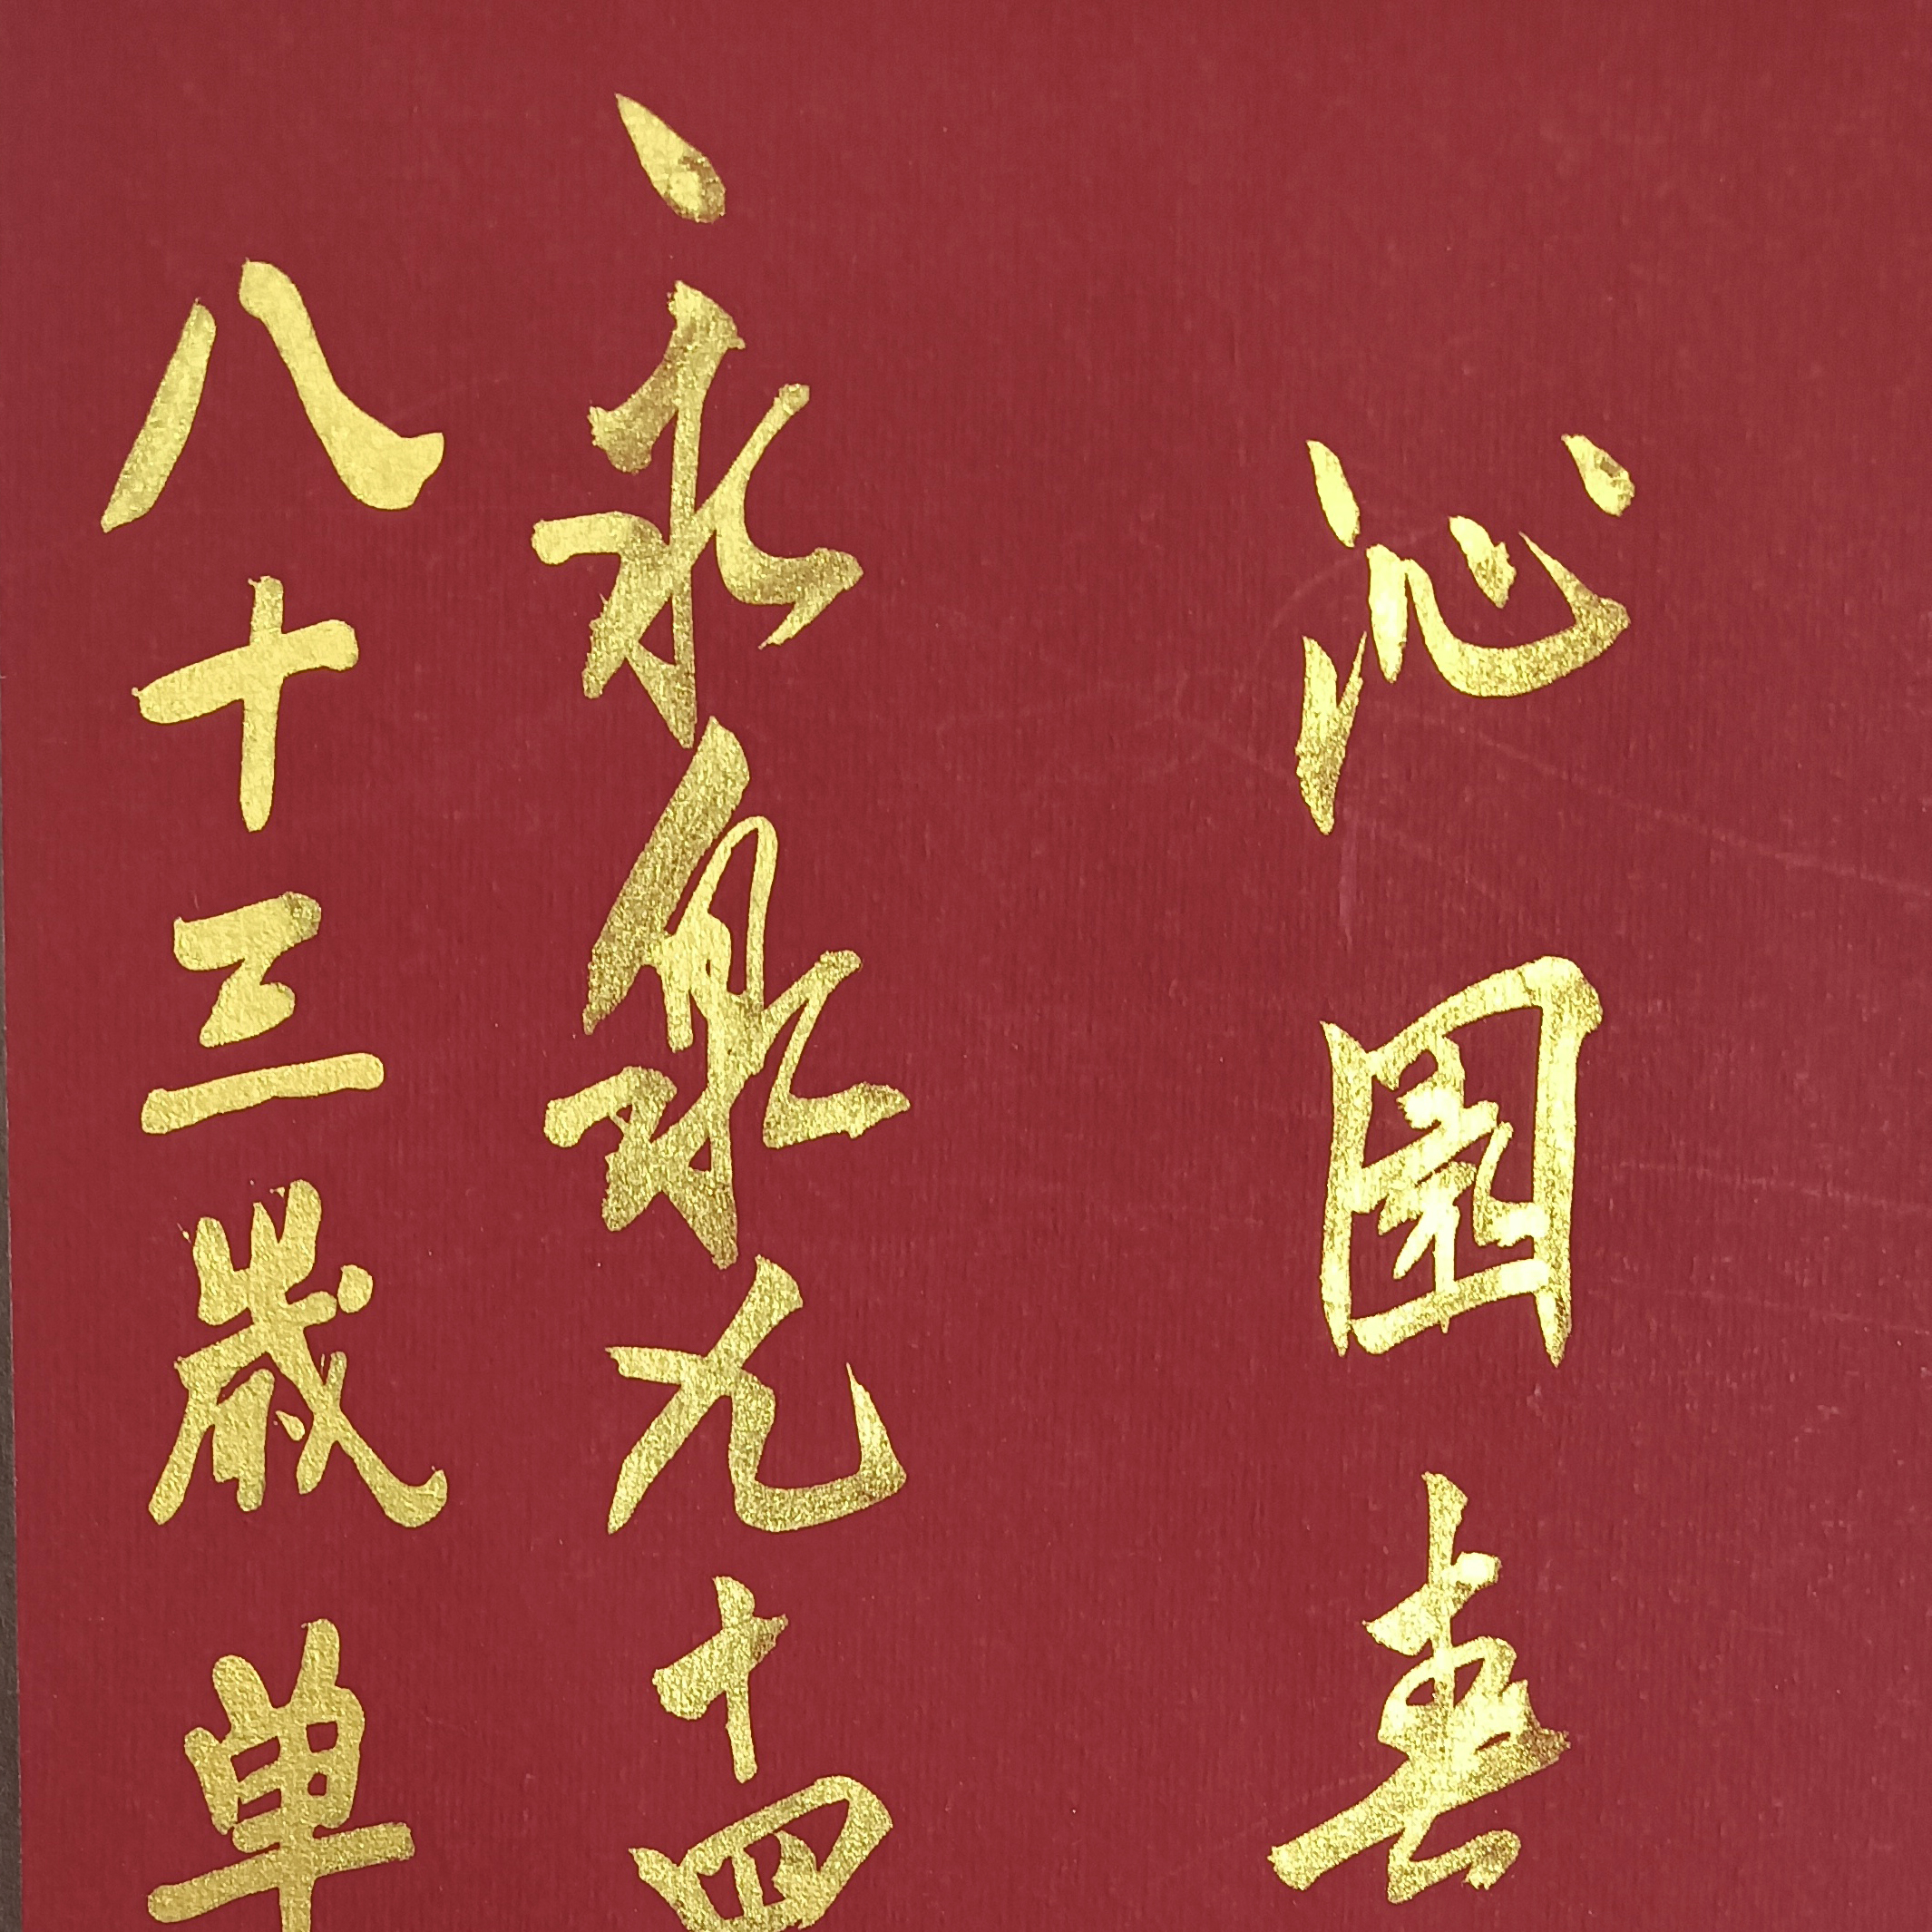 沁園春
永泉九十四
八十三歲单